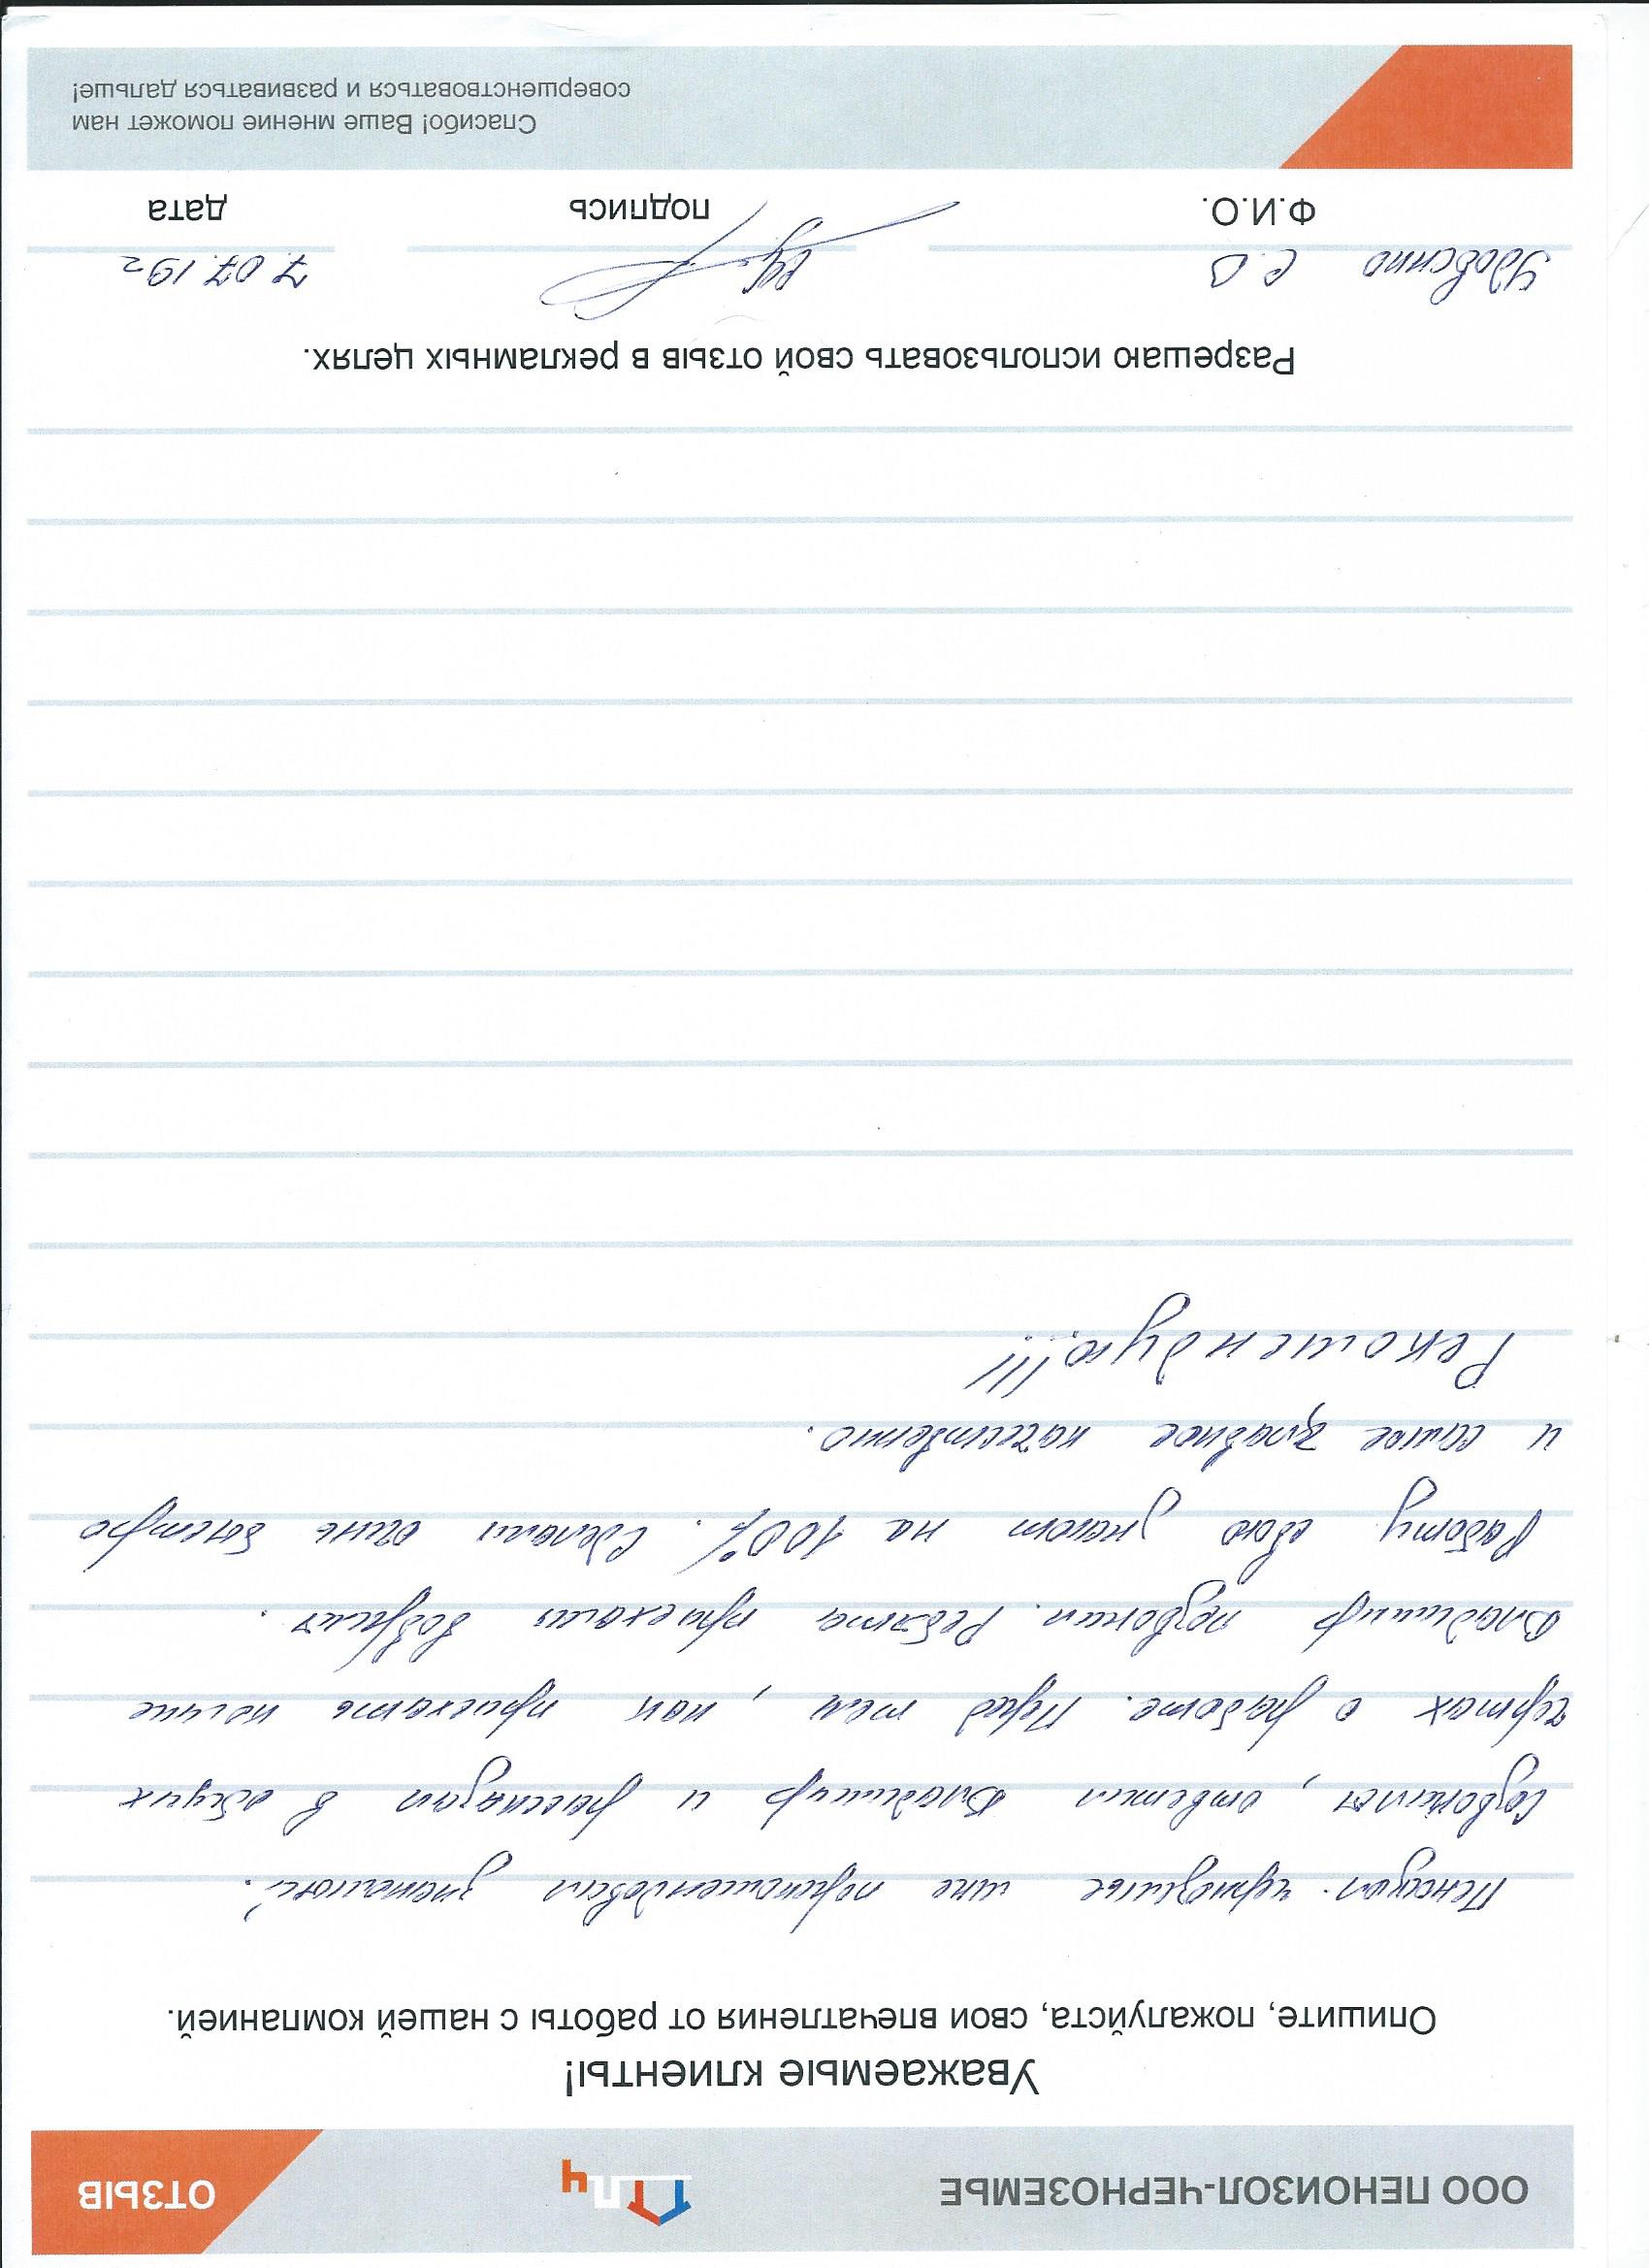 ООО ПЕНОИЗОЛ-ЧЕРНОЗЕМЬЕ ПЧ ОТЗЫВ
Уважаемые клиенты!
Опишите, пожалуйста, свои впечатления от работы с нашей компанией.
Пеноизол-черноземье мне порекомендовал знакомый.
Созвонился, ответил Владимир и рассказал в общих
чертах о работе. Перед тем, как приехать
Владимир позвонил. Ребята приехали вовремя.
Работу свою знают на 100%. Сделали очень быстро
и самое главное качественно.
Рекомендую!!!
Разрешаю использовать свой отзыв в рекламных целях.
С.В 7.07.19г
Ф.И.О. подпись дата
Спасибо! Ваше мнение поможет нам
совершенствоваться и развиваться дальше!